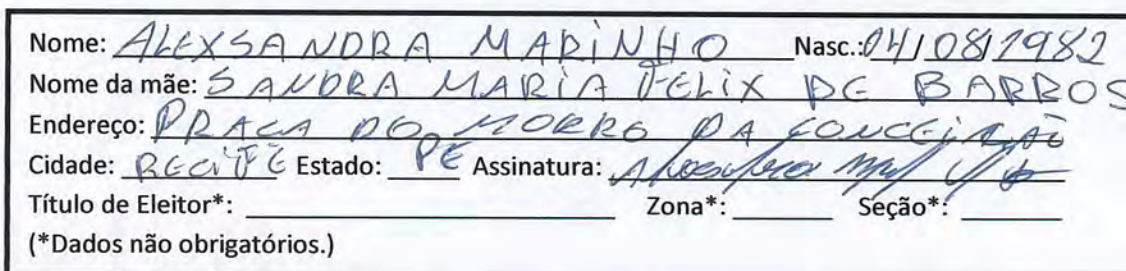 Nome: ALEXSANDRA MARINHO Nasc.: 04/08/1982
Nome da mãe: SANDRA MARIA FELIX DE BARROS
Endereço: PRAÇA DO MORRO DA CONCEIÇÃO
Cidade: RECIFE Estado: PE Assinatura:
Título de Eleitor*: Zona*: Seção*:
(*Dados não obrigatórios.)